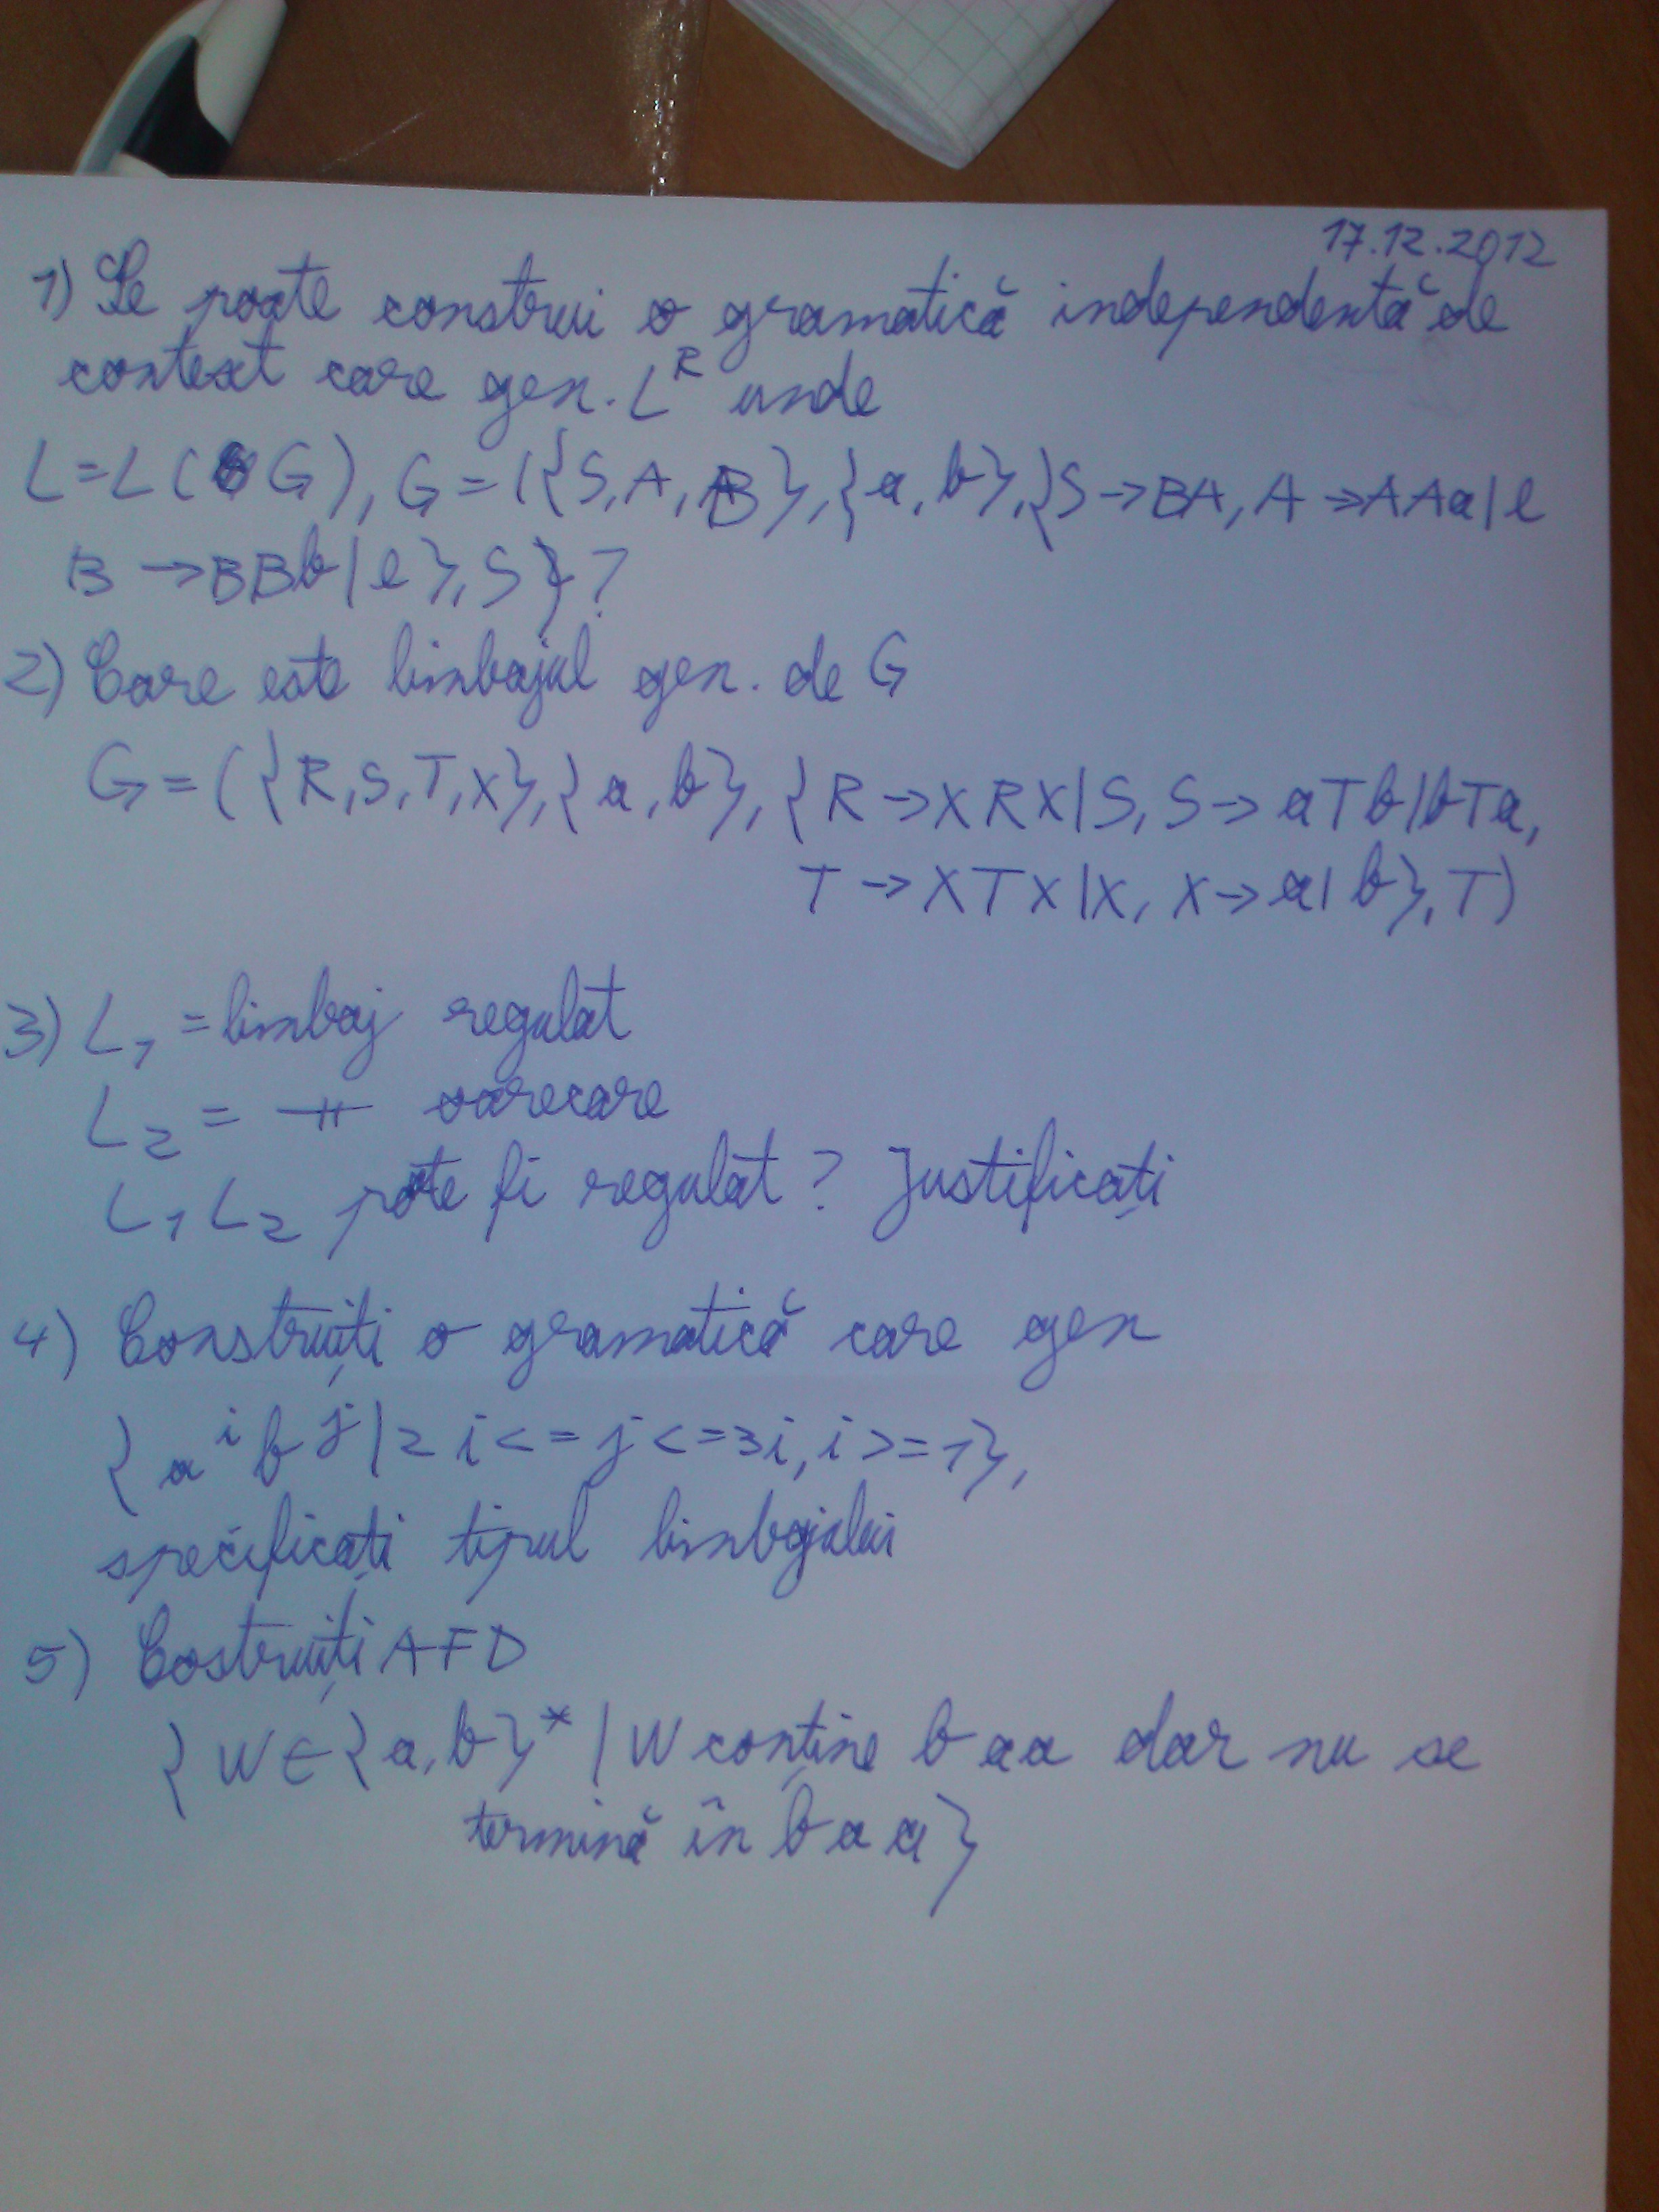 17.12.2012
1) Se poate construi o gramatică independentă de
context care gen. L^R unde
L=L(G), G=({S,A,B},{a,b},{S→BA, A→AAa|e
B→BBb|e},S}?
2) Care este limbajul gen. de G
G=({R,S,T,X},{a,b},{R→XRX|S, S→aTb|bTa,
T→XTX|X, X→a|b},T)
3) L₁ = limbaj regulat
L₂ = -"- oarecare
L₁L₂ poate fi regulat? Justificați
4) Construiți o gramatică care gen
{a^i b^j | 2i<=j<=3i, i>=1},
specificați tipul limbajului
5) Costruiți AFD
{W∈{a,b}* | W conține baa dar nu se
termină în baa}